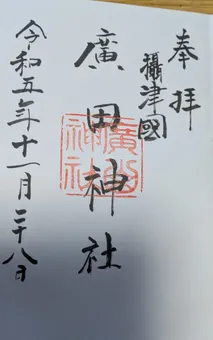 奉拝
攝津國
廣田神社
廣田
神社
令和五年十一月二十八日